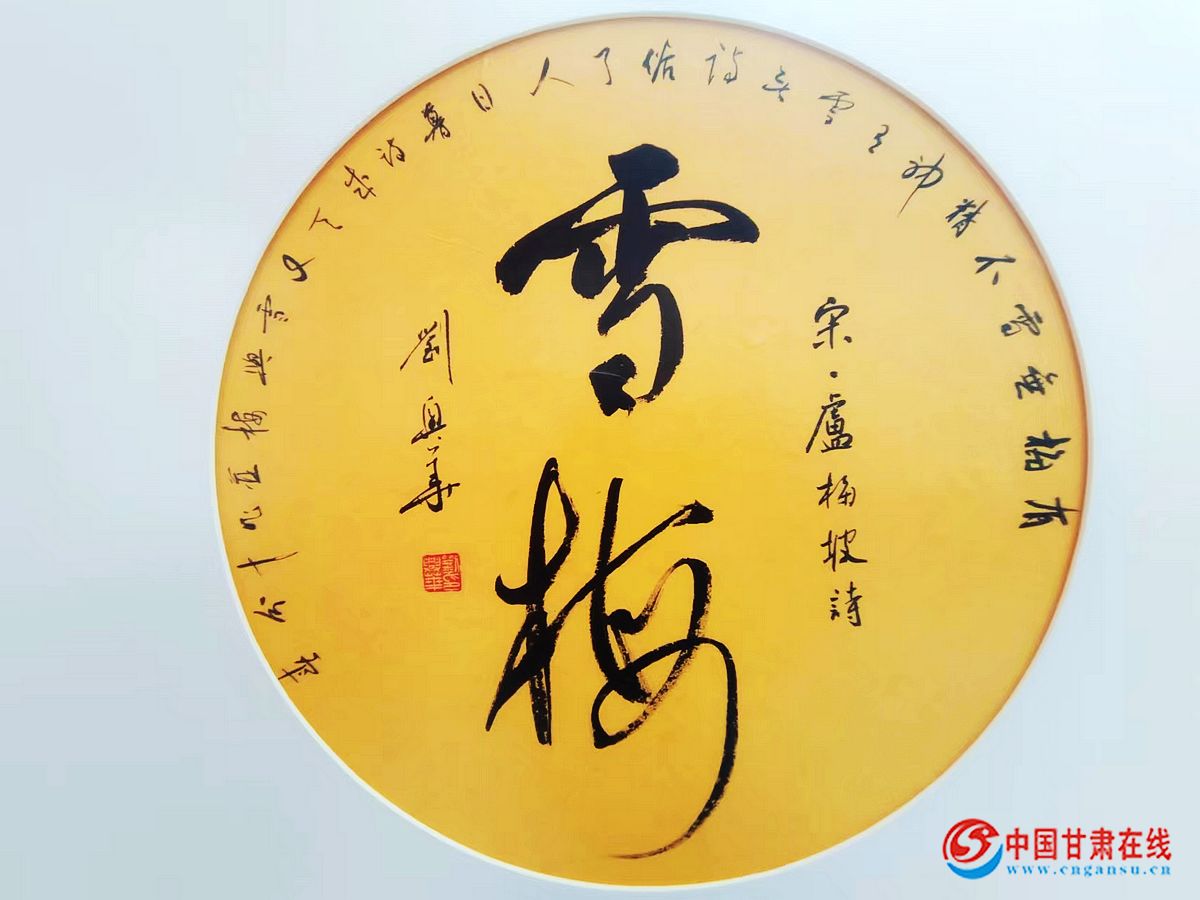 有梅無雪不精神有雪無詩俗了人日暮詩成天又雪與梅並作十分春
宋·盧梅坡詩
雪梅
劉興華
中国甘肃在线
www.cngansu.cn